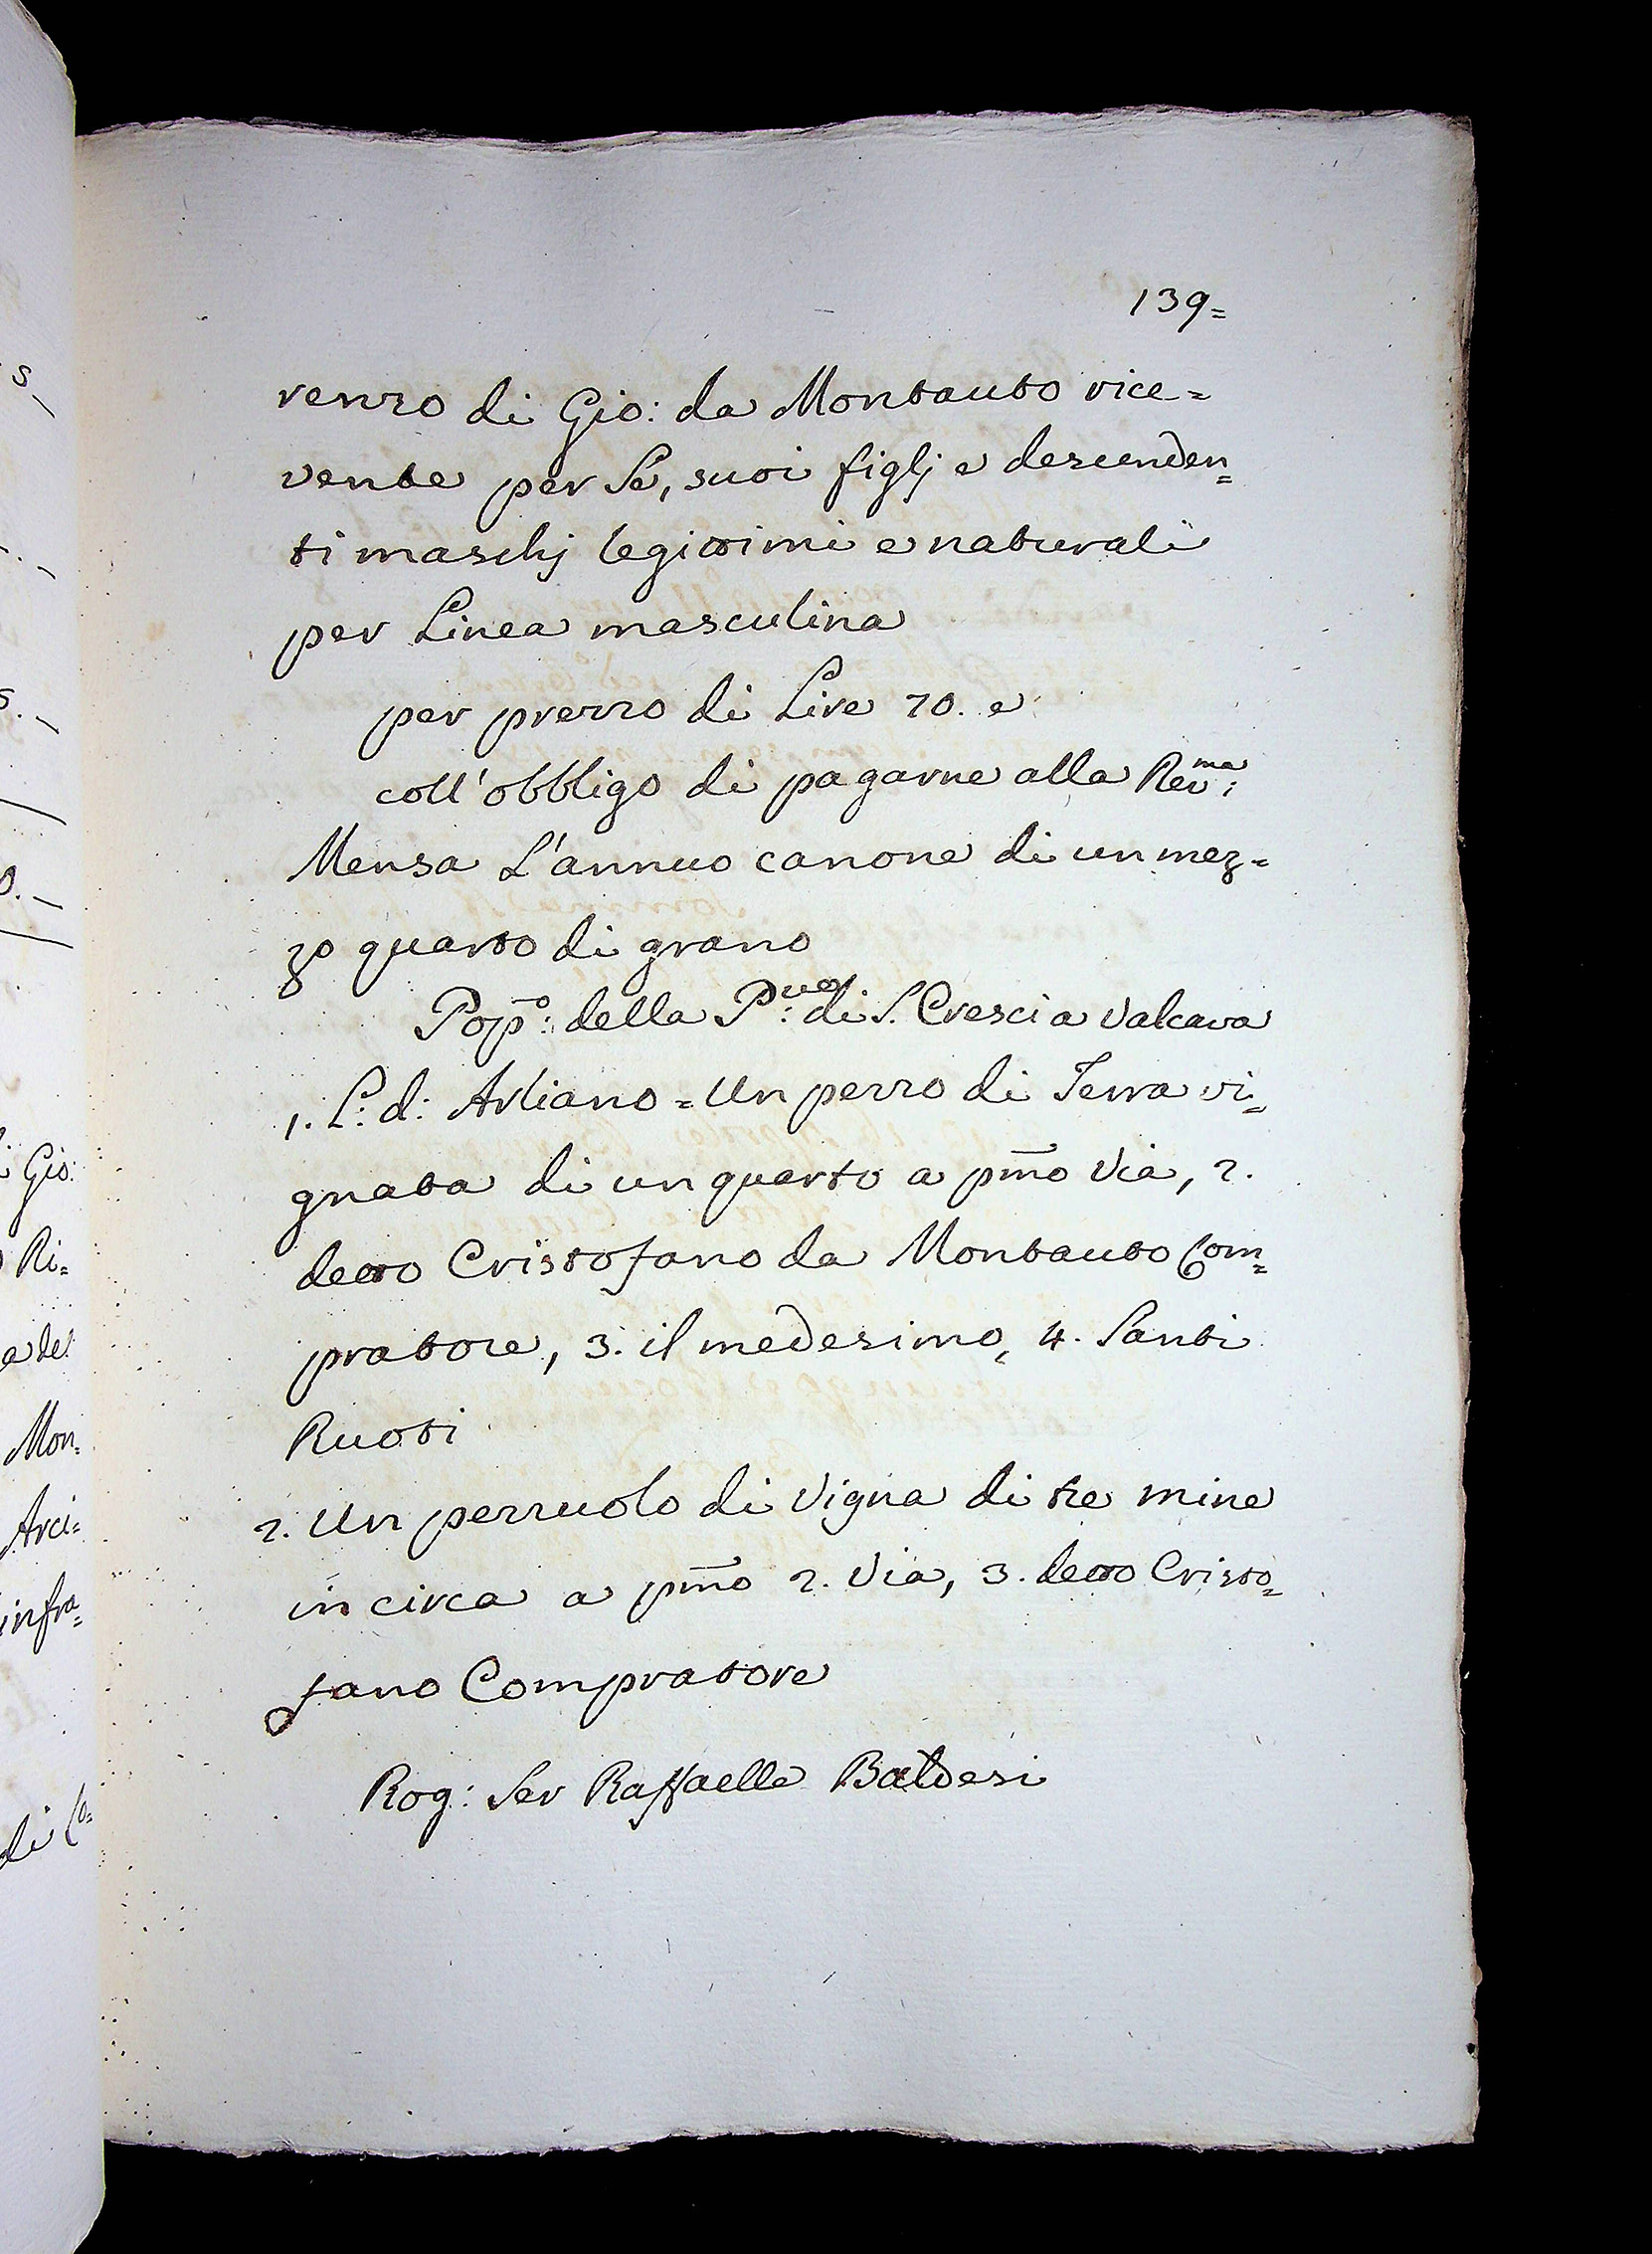 139=
renzo di Gio: da Montauto rice=
vente per Se, suoi figlj e descenden=
ti maschj legittimi e naturali
per Linea masculina
per prezzo di Lire 70. e
coll'obbligo di pagarne alla Rev:ma
Mensa L'annuo canone di un mez=
zo quarto di grano
Popo: della P:ve di S. Cresci a Valcava
1. L: d: Arliano = Un pezzo di Terra vi=
gnata di un quarto a pmo Via, 2.
detto Cristofano da Montauto Com=
pratore, 3. il medesimo, 4. Santi
Ruoti
2. Un pezzuolo di Vigna di tre mine
in circa a pmo 2. Via, 3. detto Cristo=
fano Compratore
Rog: Ser Raffaelle Baldesi
s_
s._
0._
i Gio:
Ri=
Mon=
Arci=
infra=
di Co=